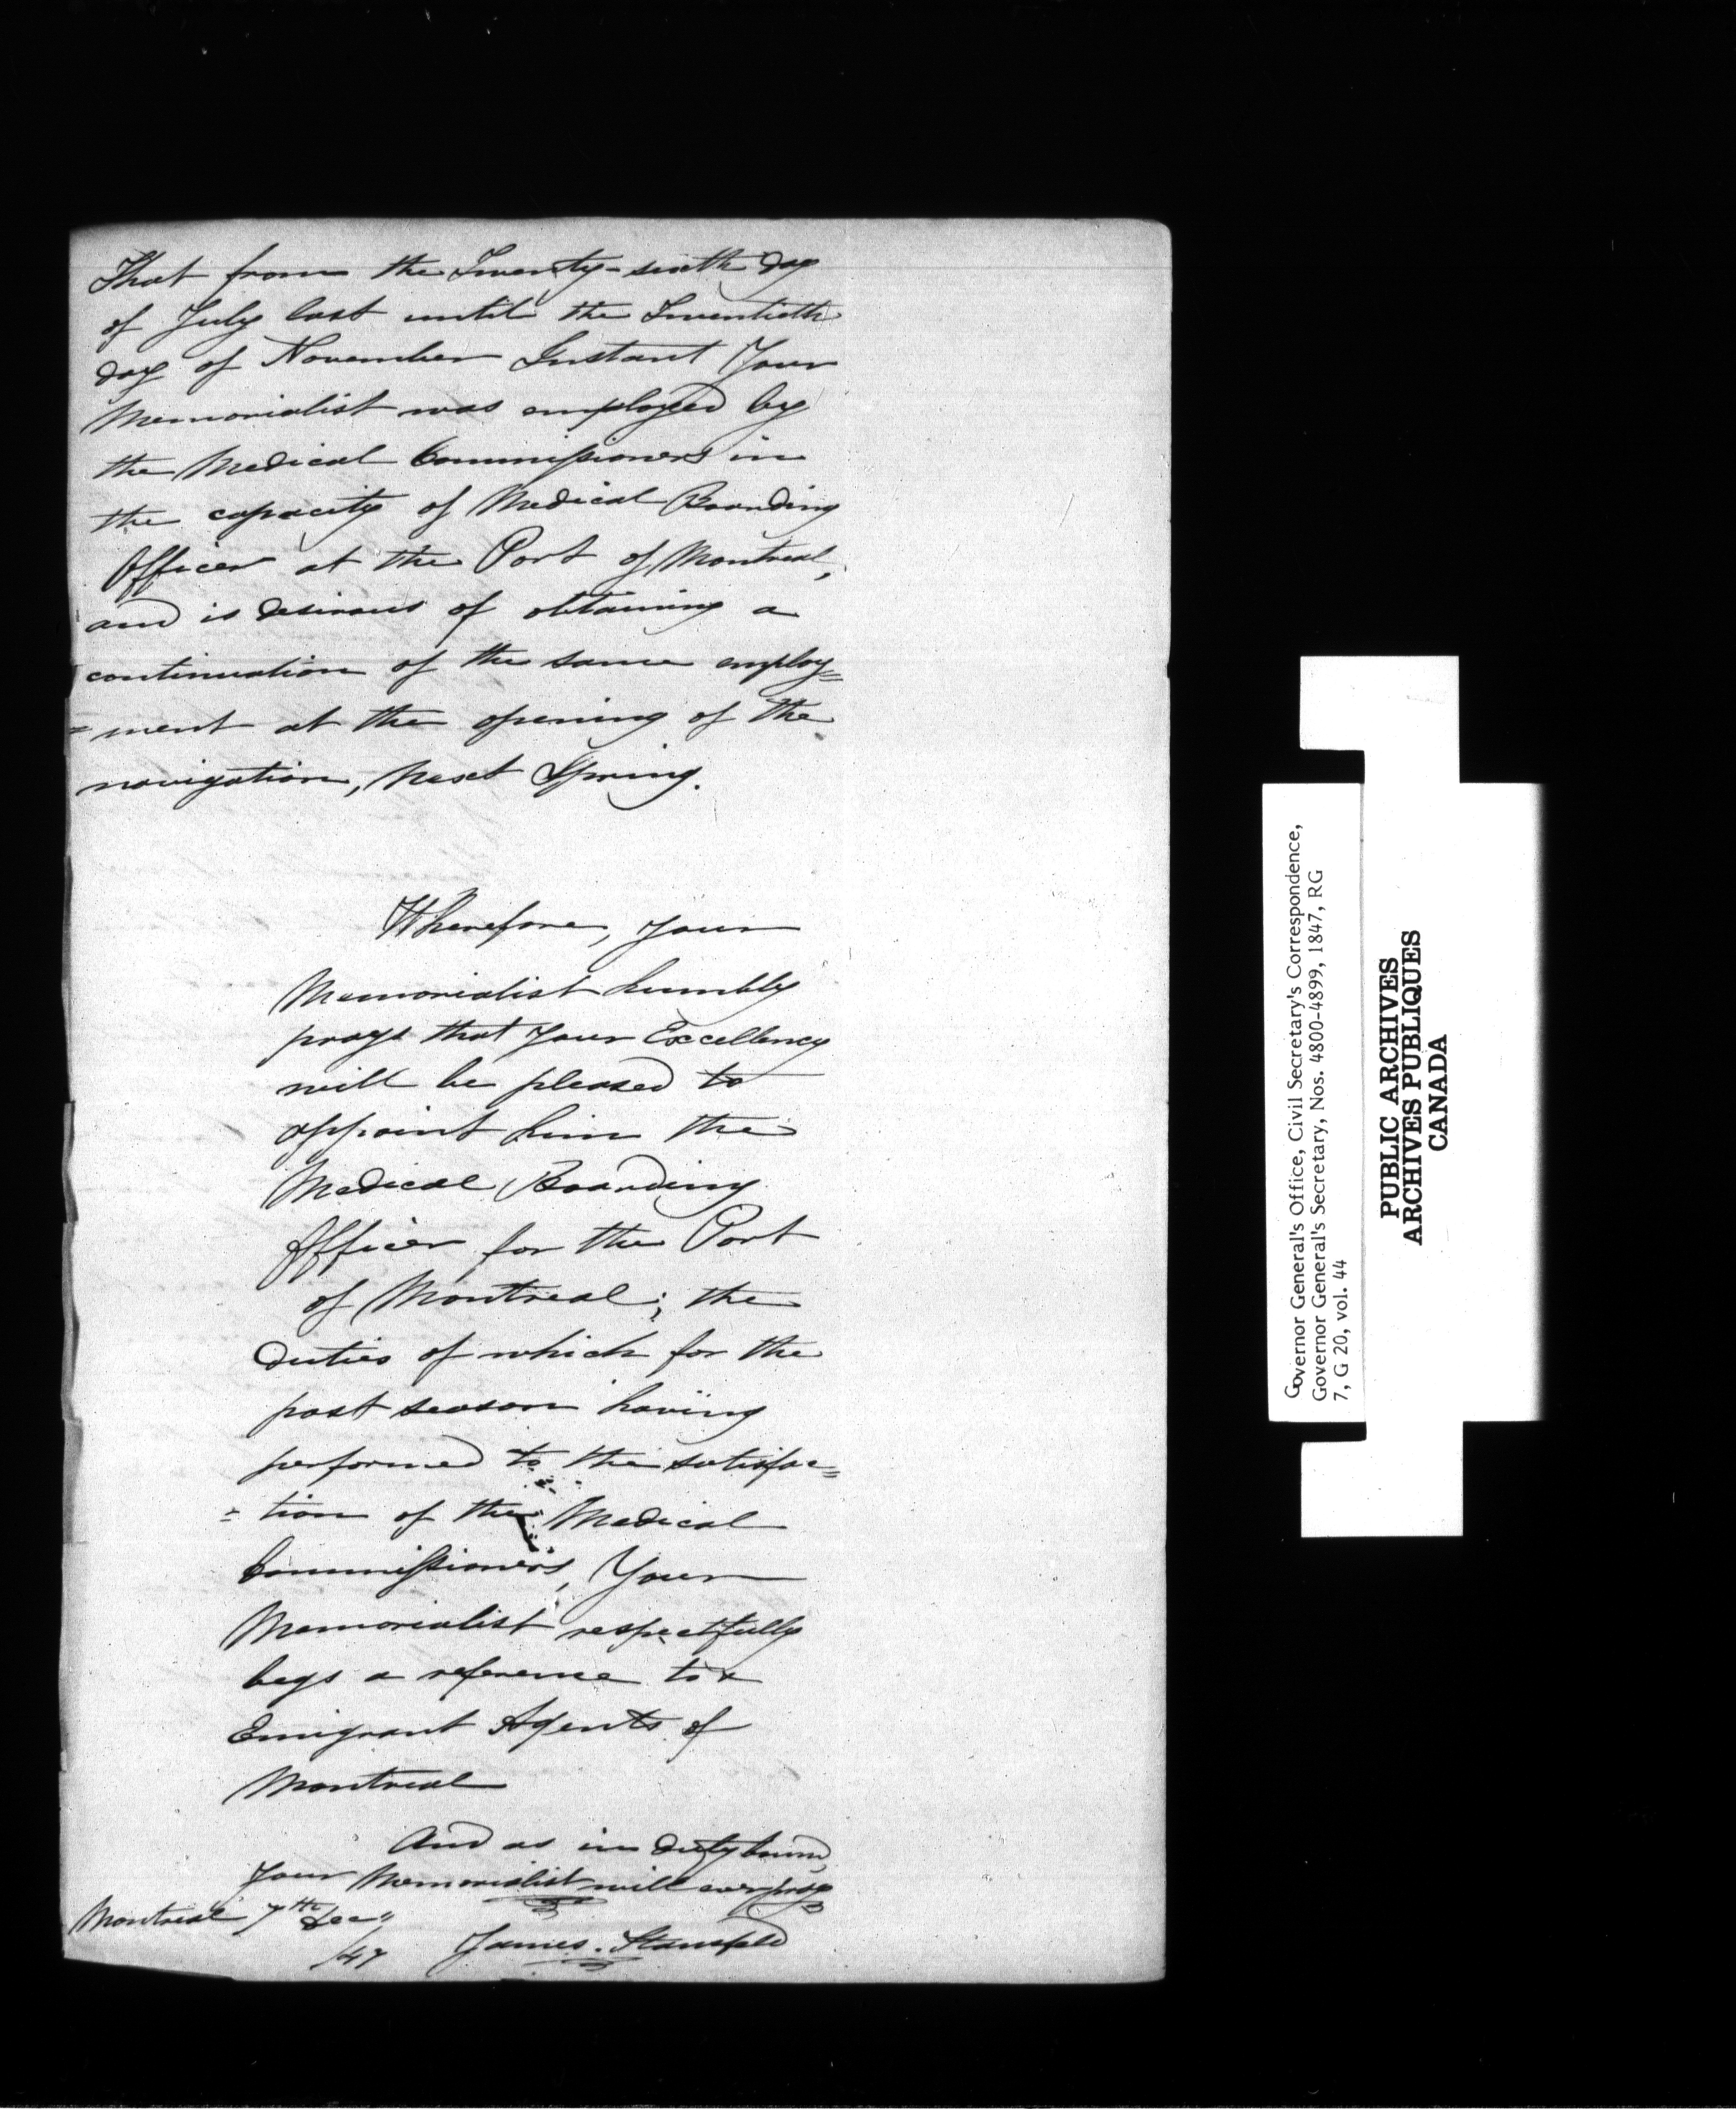 That from the Twenty-sixth day
of July last until the Twentieth
day of November Instant Your
Memorialist was employed by
the Medical Commissioners in
the capacity of Medical Boarding
Officer at the Port of Montreal,
and is desirous of obtaining a
continuation of the same employ=
=ment at the opening of the
navigation, next Spring.
Wherefore, your
Memorialist humbly
prays that your Excellency
will be pleased to
appoint him the
Medical Boarding
Officer for the Port
of Montreal; the
duties of which for the
past season having
performed to the satisfac=
=tion of the Medical
Commissioners, Your
Memorialist respectfully
begs a reference to
Emigrant Agents of
Montreal
And as in duty bound,
Your Memorialist will ever pray
Montreal 7th Dec"
/47 James. Stansfeld
Governor General's Office, Civil Secretary's Correspondence,
Governor General's Secretary, Nos. 4800-4899, 1847, RG
7, G 20, vol. 44
PUBLIC ARCHIVES
ARCHIVES PUBLIQUES
CANADA